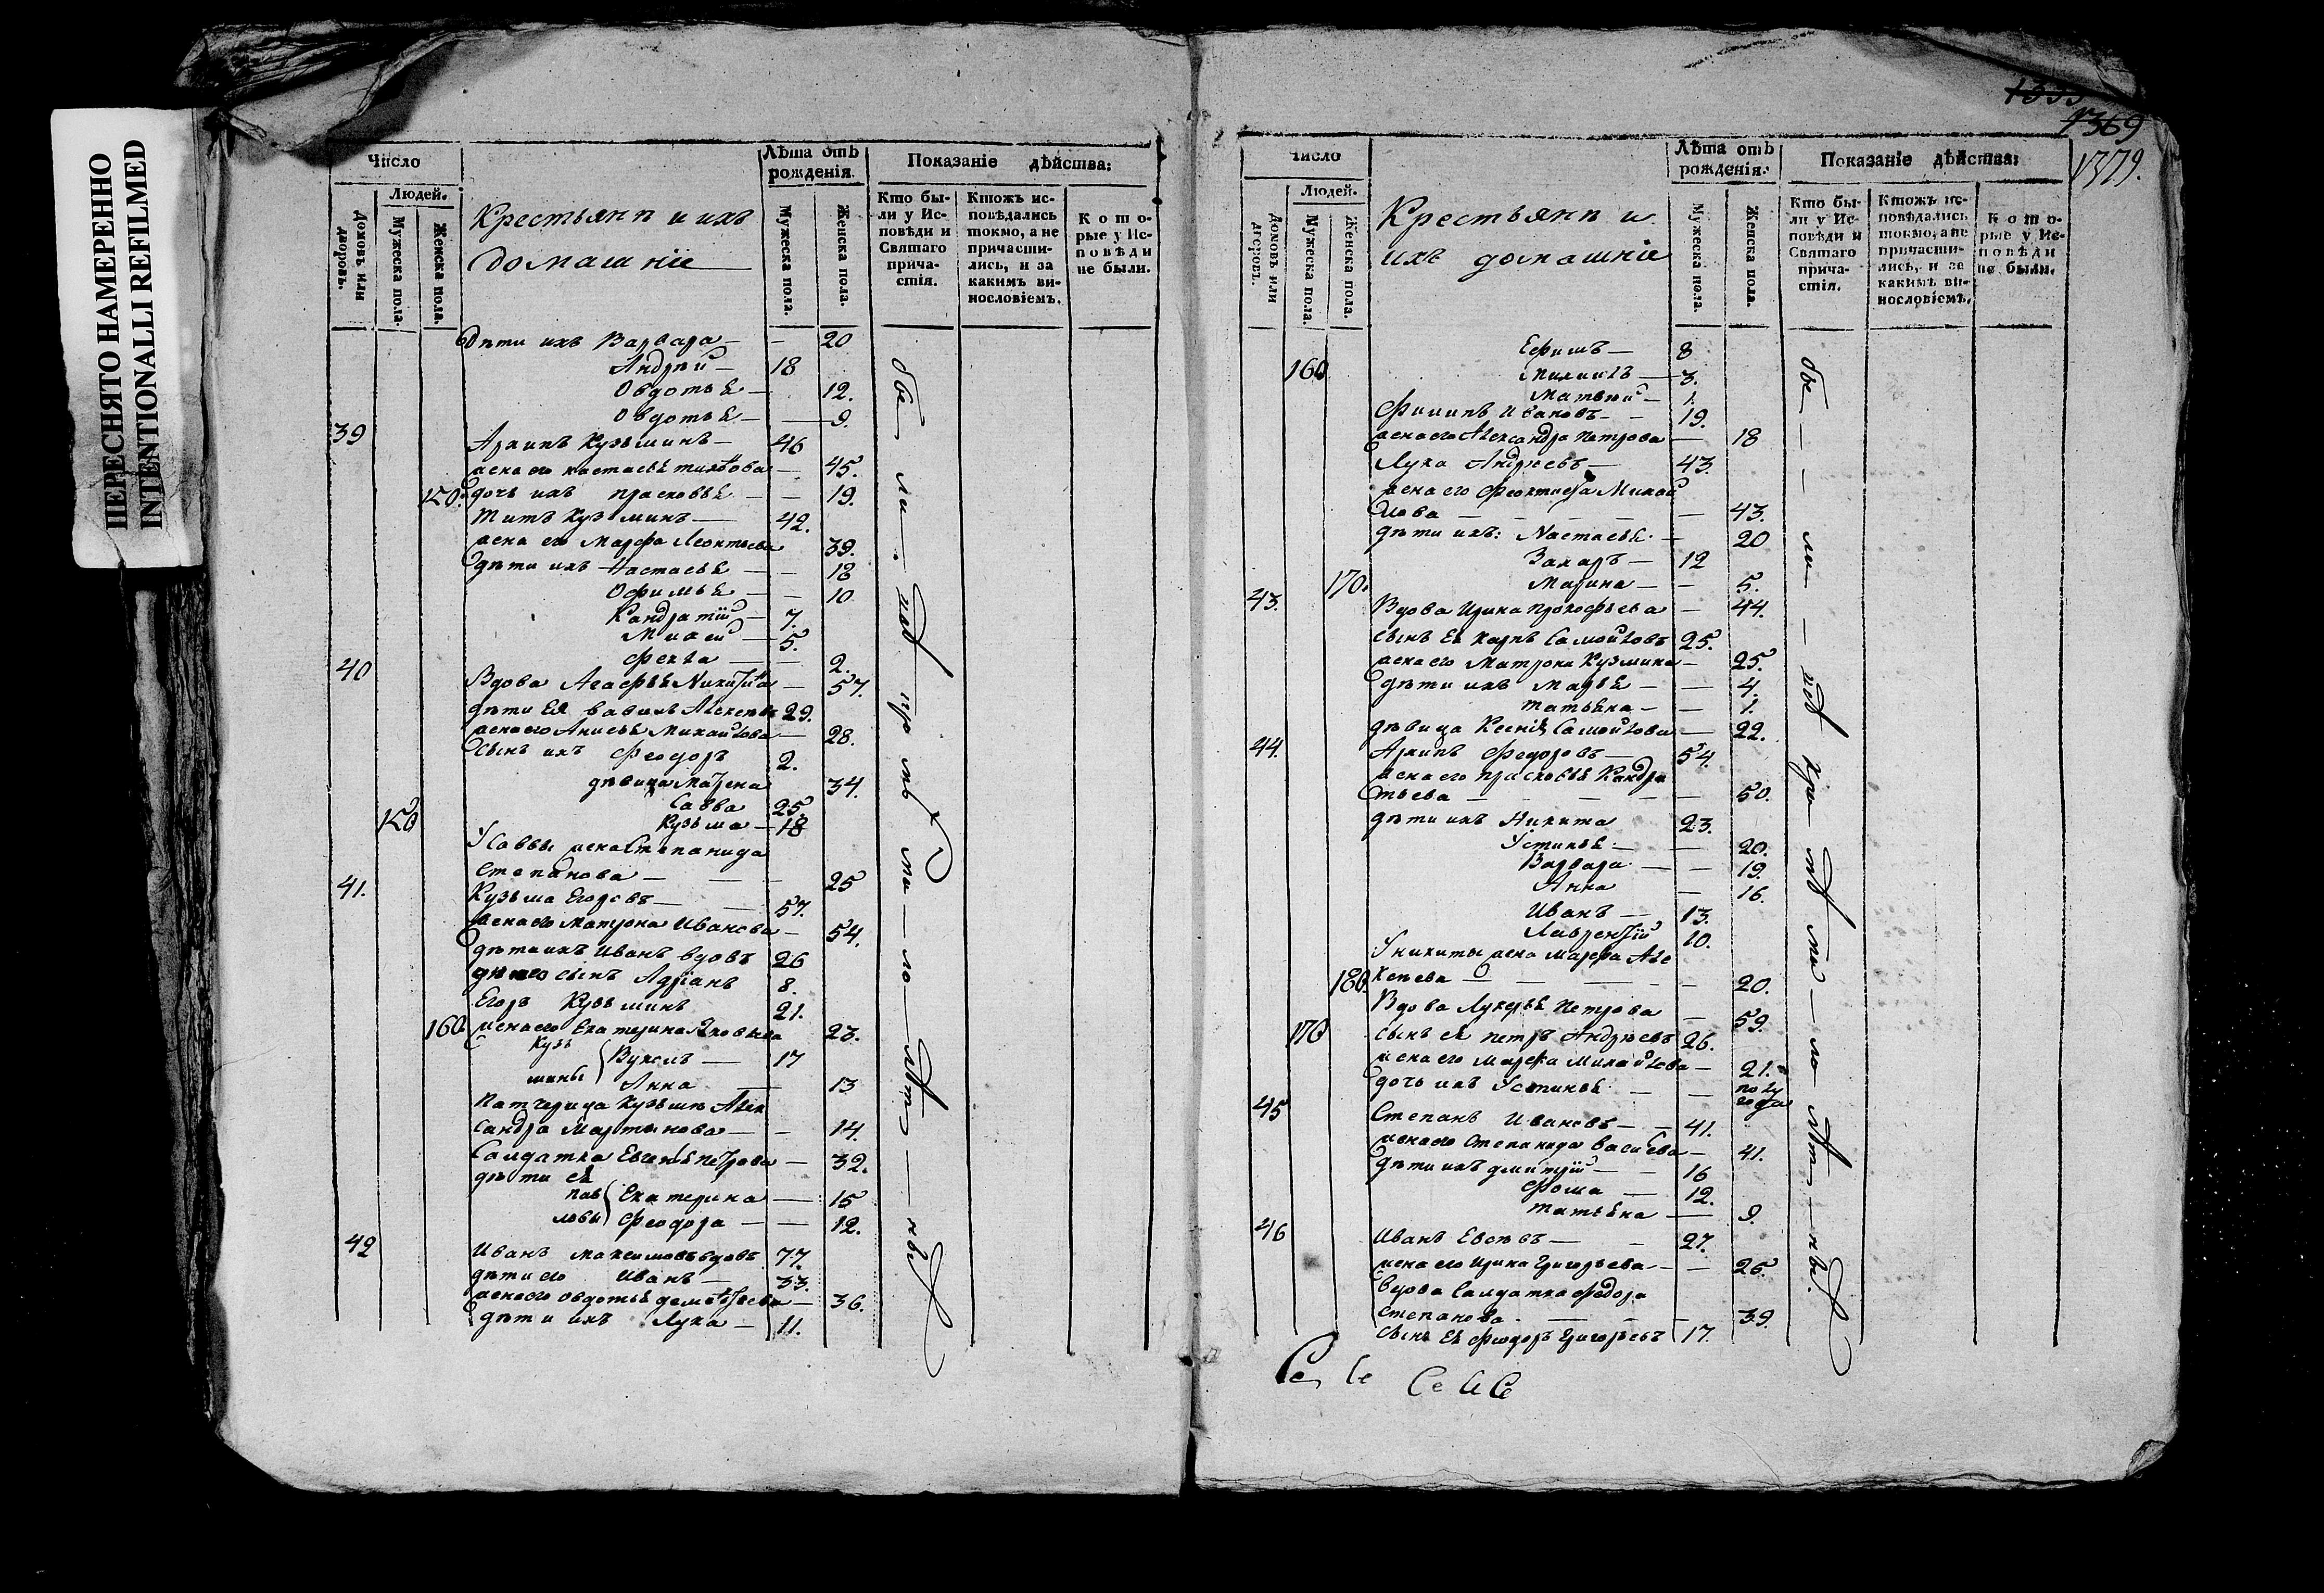 ПЕРЕСНЯТО НАМЕРЕННО
INTENTIONALLI REFILMED
Число
Людей.
Домовъ или дворовъ.
Мужеска пола.
Женска пола.
Крестьянѣ и ихъ
домашніе
Лѣта отъ рожденія.
Мужеска пола.
Женска пола.
Показаніе дѣйства:
Кто бы-
ли у Ис-
повѣди и
Святаго
прича-
стія.
Ктожъ ис-
повѣдались
токмо, а не
причасти-
лись, и за
какимъ ви-
нословіемъ.
К о т о-
рые у Ис-
п о в ѣ д и
не были.
дѣти ихъ Варвара — — 20
Андрѣй — 18
Овдотья — 12.
Овдотья — — 9.
39 Архипъ Кузьминъ — 46
жена его Настасья — 45.
150. дочь ихъ Прасковья — — 19.
Титъ Кузьминъ — 42.
жена его Марфа Леонтьева 39.
дѣти ихъ Настасья — — 18
Офимья — — 10
Кандратій — 7.
Мисей — 5.
Фекла — — 2.
40 Вдова Агафья Никитина — 57.
дѣти ея Вавилъ Алексѣевъ 29.
жена его Анисья Михайлова — 28.
сынъ ихъ Феодоръ 2.
дѣвица Матрена 34.
Савва 25.
150 Кузьма — 18
У Саввы жена Степанида
Степанова — — — 25
41. Кузьма Егоровъ — — 57.
жена его Матрона Иванова — 54.
дѣти ихъ Иванъ вдовъ 26
у него сынъ Адріанъ 8.
Егоръ Кузьминъ 21.
160. жена его Екатерина Яковлева 23.
Кузь
мины
Вуколъ — 17
Анна — 13
Патчерица Кузьмы Алек
сандра Мартынова — — 14.
Салдатка Евгенья Петрова — 32.
дѣти ея
Пав
ловы
Екатерина — 15
Феодора — — 12.
42 Иванъ Максимовъ вдовъ 77.
дѣти его Иванъ — 33.
жена его Овдотья Деметрьева — 36.
дѣти ихъ Лука — 11.
1369
1379.
Число
Людей.
Домовъ или дворовъ.
Мужеска пола.
Женска пола.
Крестьянѣ и
ихъ домашніе
Лѣта отъ рожденія.
Мужеска пола.
Женска пола.
Показаніе дѣйства:
Кто бы-
ли у Ис-
повѣди и
Святаго
прича-
стія.
Ктожъ ис-
повѣдались
токмо, а не
причасти-
лись, и за
какимъ ви-
нословіемъ.
К о т о-
рые у Ис-
п о в ѣ д и
не были.
Ефимъ — 8
160 Михаилъ — 3.
Матвей — 1.
Филипъ Ивановъ — — 19.
жена его Александра Петрова — 18
Лука Андреевъ — 43.
жена его Феоктиста Михай
лова — — — — — 43.
дѣти ихъ: Настасья — 20
Захаръ — 12
170. Марина — — 5.
43. Вдова Ирина Прокофьева — 44.
сынъ ея Карпъ Самойловъ 25.
жена его Матрона Кузмина — 25.
дѣти ихъ Марья — — 4.
Татьяна — — 1.
дѣвица Ксенія Самойлова — 22.
44. Архипъ Федоровъ — 54.
жена его Прасковья Кандра
тьева — — — — 50.
дѣти ихъ Никита 23.
Устинья — — 20.
Варвара — — 19.
Анна — 16.
Иванъ — 13.
Лаврентій 10.
У Никиты жена Марфа Але
180. ксеева — — — — 20.
Вдова Лукерья Петрова — 59.
170 сынъ ея Петръ Андреевъ 26.
жена его Марфа Михайлова — 21.
дочь ихъ Устинья — — полу
года
45 Степанъ Ивановъ — — 41.
жена его Степанида Василева — 41.
дѣти ихъ Дмитрій — — 16
Фома — 12.
Татьяна — 9.
46 Иванъ Евсѣевъ — — 27.
жена его Ирина Григорьева — — 25.
Вдова Салдатка Федора
Степанова — — — — 39.
сынъ ея Феодоръ Григорьевъ 17.
Се Се Се Се Се